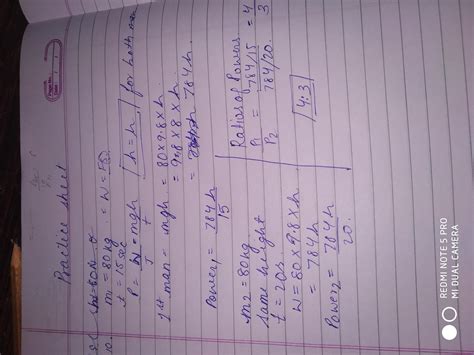 Practice sheet
m = 80 kg = W =
t = 15 sec
P = W = mgh [h = h] for both men
t
1st man = mgh = 80 x 9.8 x h
= 9.8 x 8 x h
= 784h
Power1 = 784h
15
m2 = 80kg
same height
t = 20s
W = 80 x 9.8 x h
= 784h
Power2 = 784h
20.
Ratios of Powers
P1 = 784/15 = 4
P2 784/20. 3
4:3
REDMI NOTE 5 PRO
MI DUAL CAMERA